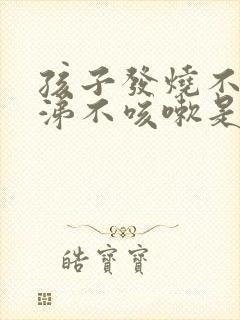 孩子發燒不
涕不咳嗽是
皓寶寶